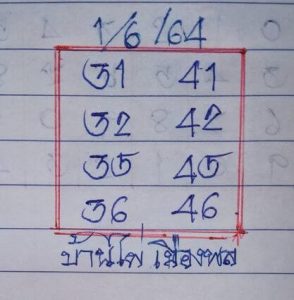 1/6/64
31 41
32 42
35 45
36 46
บ้านไผ่ เมืองพล